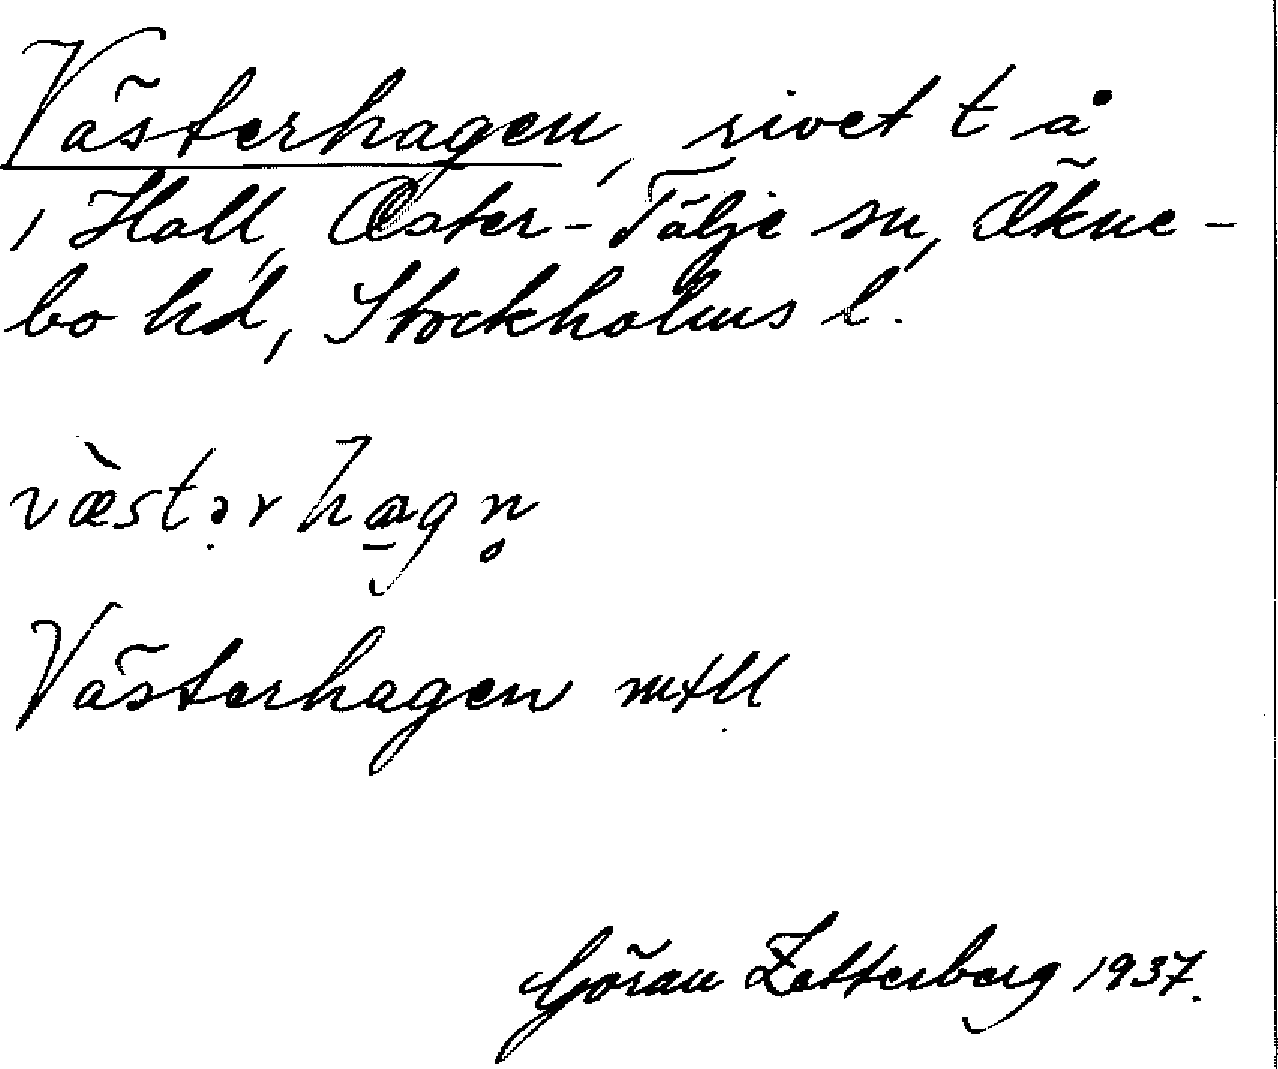 Västerhagen, rivet t å
i Hall, Öster-Tälje sn, Ökne-
bo hd, Stockholms l.
væ̀stərhagn̥
Västerhagen mtll
Göran Zetterberg 1937.